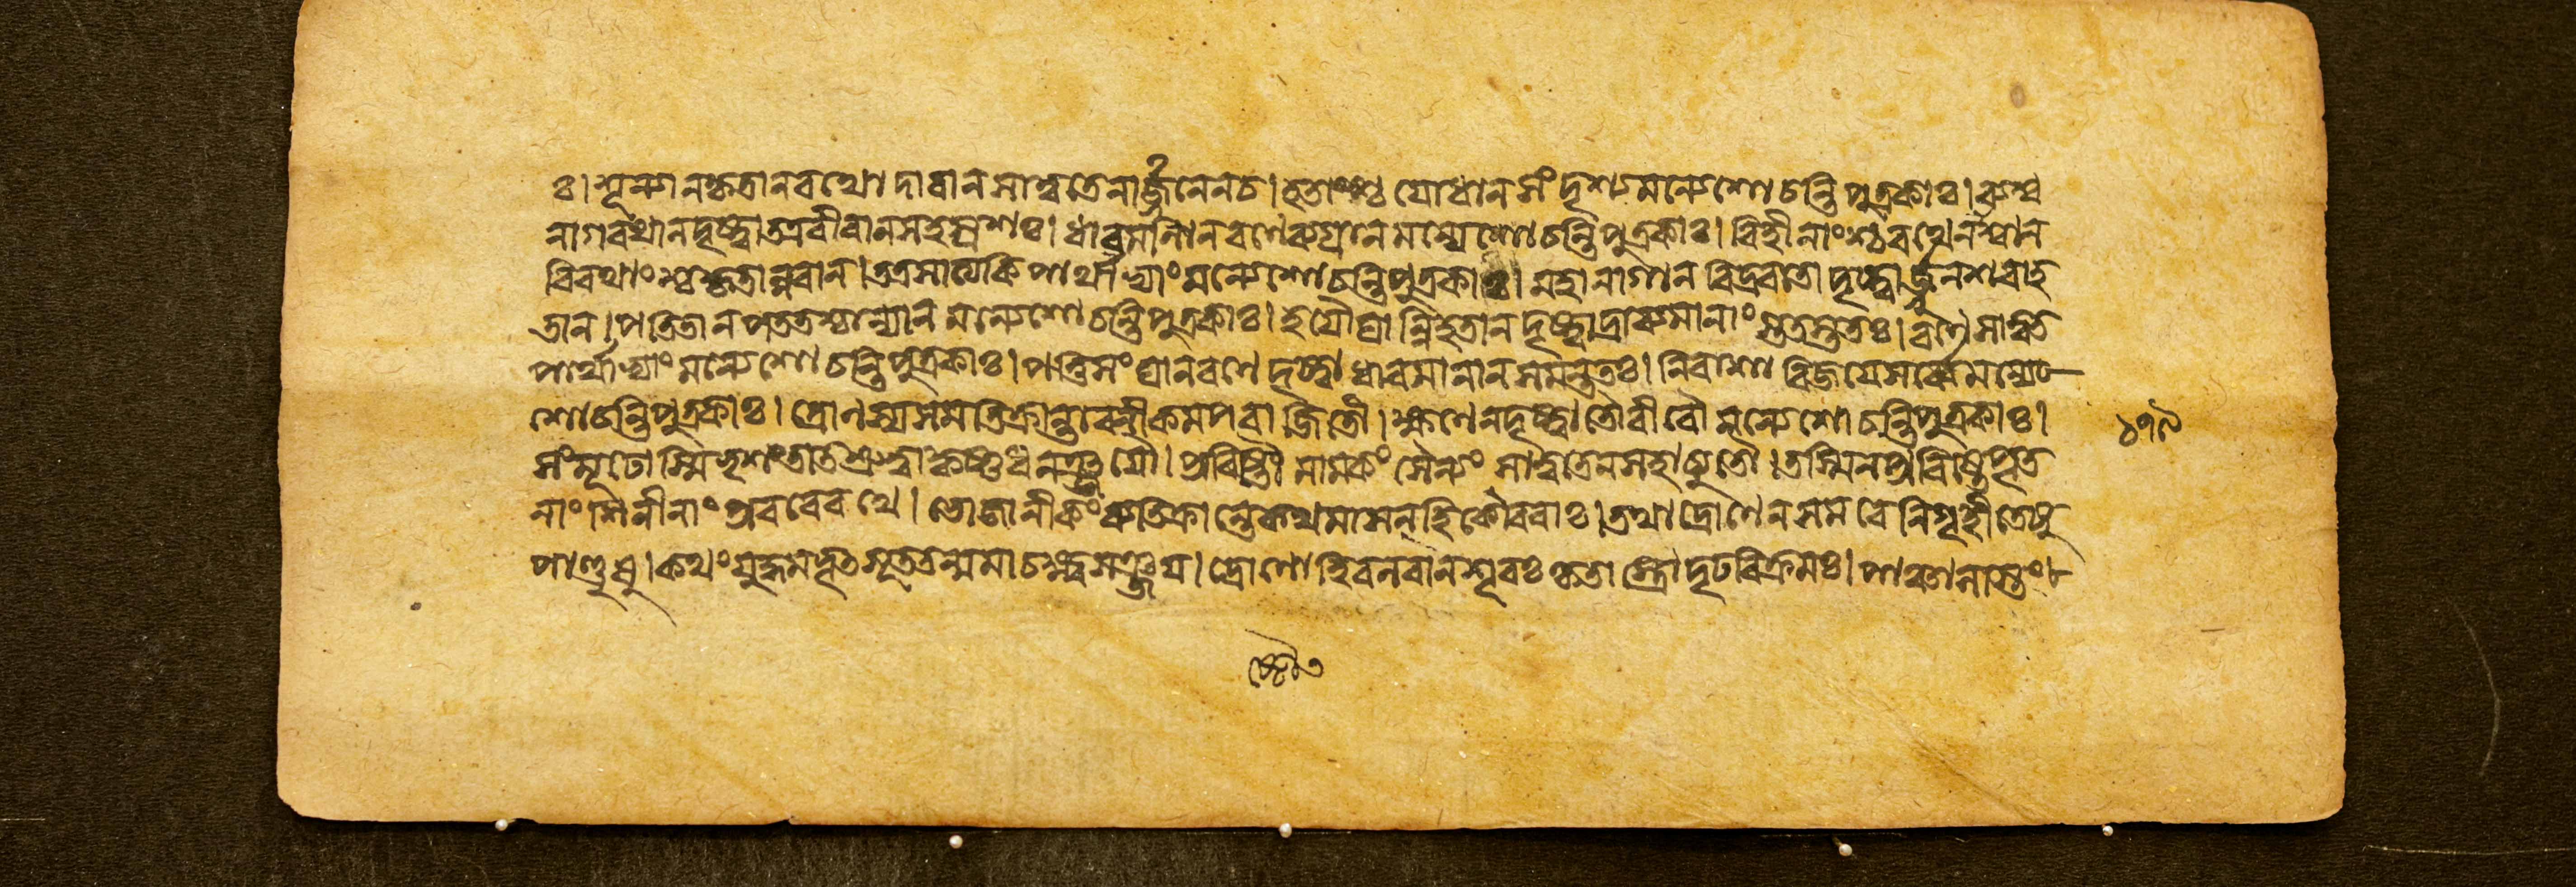 ঃ। শূন্যান কৃতান রথোপস্থান সাত্বতেনার্জুনেনচ। হতাংশ্চ যোধান সংদৃশ্য মন্যে শোচন্তি পুত্রকাঃ। ব্যশ্ব
নাগরথান দৃষ্ট্বা তত্র বীরান সহস্রশঃ। ধাবমানান রণে ব্যগ্রান মন্যে শোচন্তি পুত্রকাঃ। বিহীনাংশ্চ রথেনশ্বান
বিরথাংশ্চ কৃতান্নরান। তত্র সাত্যকি পার্থাভ্যাং মন্যে শোচন্তি পুত্রকাঃ। মহানাগান বিদ্রবতো দৃষ্ট্বার্জুনশরাহ
তান। পতিতান পততশ্চান্যান মন্যে শোচন্তি পুত্রকাঃ। হয়ৌঘান্নিহতান দৃষ্ট্বা দ্রাব্যমানাং স্ততস্ততঃ। রণে সাত্বত
পার্থাভ্যাং মন্যে শোচন্তি পুত্রকাঃ। পত্তিসংঘান রণে দৃষ্ট্বা ধাবমানান সমন্ততঃ। নিরাশা বিজয়ে সর্ব্বে মন্যে
শোচন্তি পুত্রকাঃ। দ্রোণস্য সমতিক্রান্তাবনীকমপরাজিতৌ। ক্ষণেন দৃষ্ট্বা তৌ বীরৌ মন্যে শোচন্তি পুত্রকাঃ।
সংমূঢোস্মি ভৃশং তাত শ্রুত্বা কৃষ্ণধনঞ্জয়ৌ। প্রবিষ্টৌ মামকং সৈন্যং সাত্বতেন সহাচ্যুতৌ। তস্মিন প্রবিষ্টে পৃত
নাং শিনীনাং প্রবরে রথে। ভোজানীকং ব্যতিক্রান্তে কথমাসন্ হি কৌরবাঃ। তথা দ্রোণেন সমরে নিগৃহীতেষু
পাণ্ডুষু। কথং যুদ্ধমভূত্তত্র তন্মমাচক্ষ্ব সঞ্জয়। দ্রোণো হি বলবান শূরঃ কৃতাস্ত্রো দৃঢবিক্রমঃ। পাঞ্চালাস্তং
১৭৯